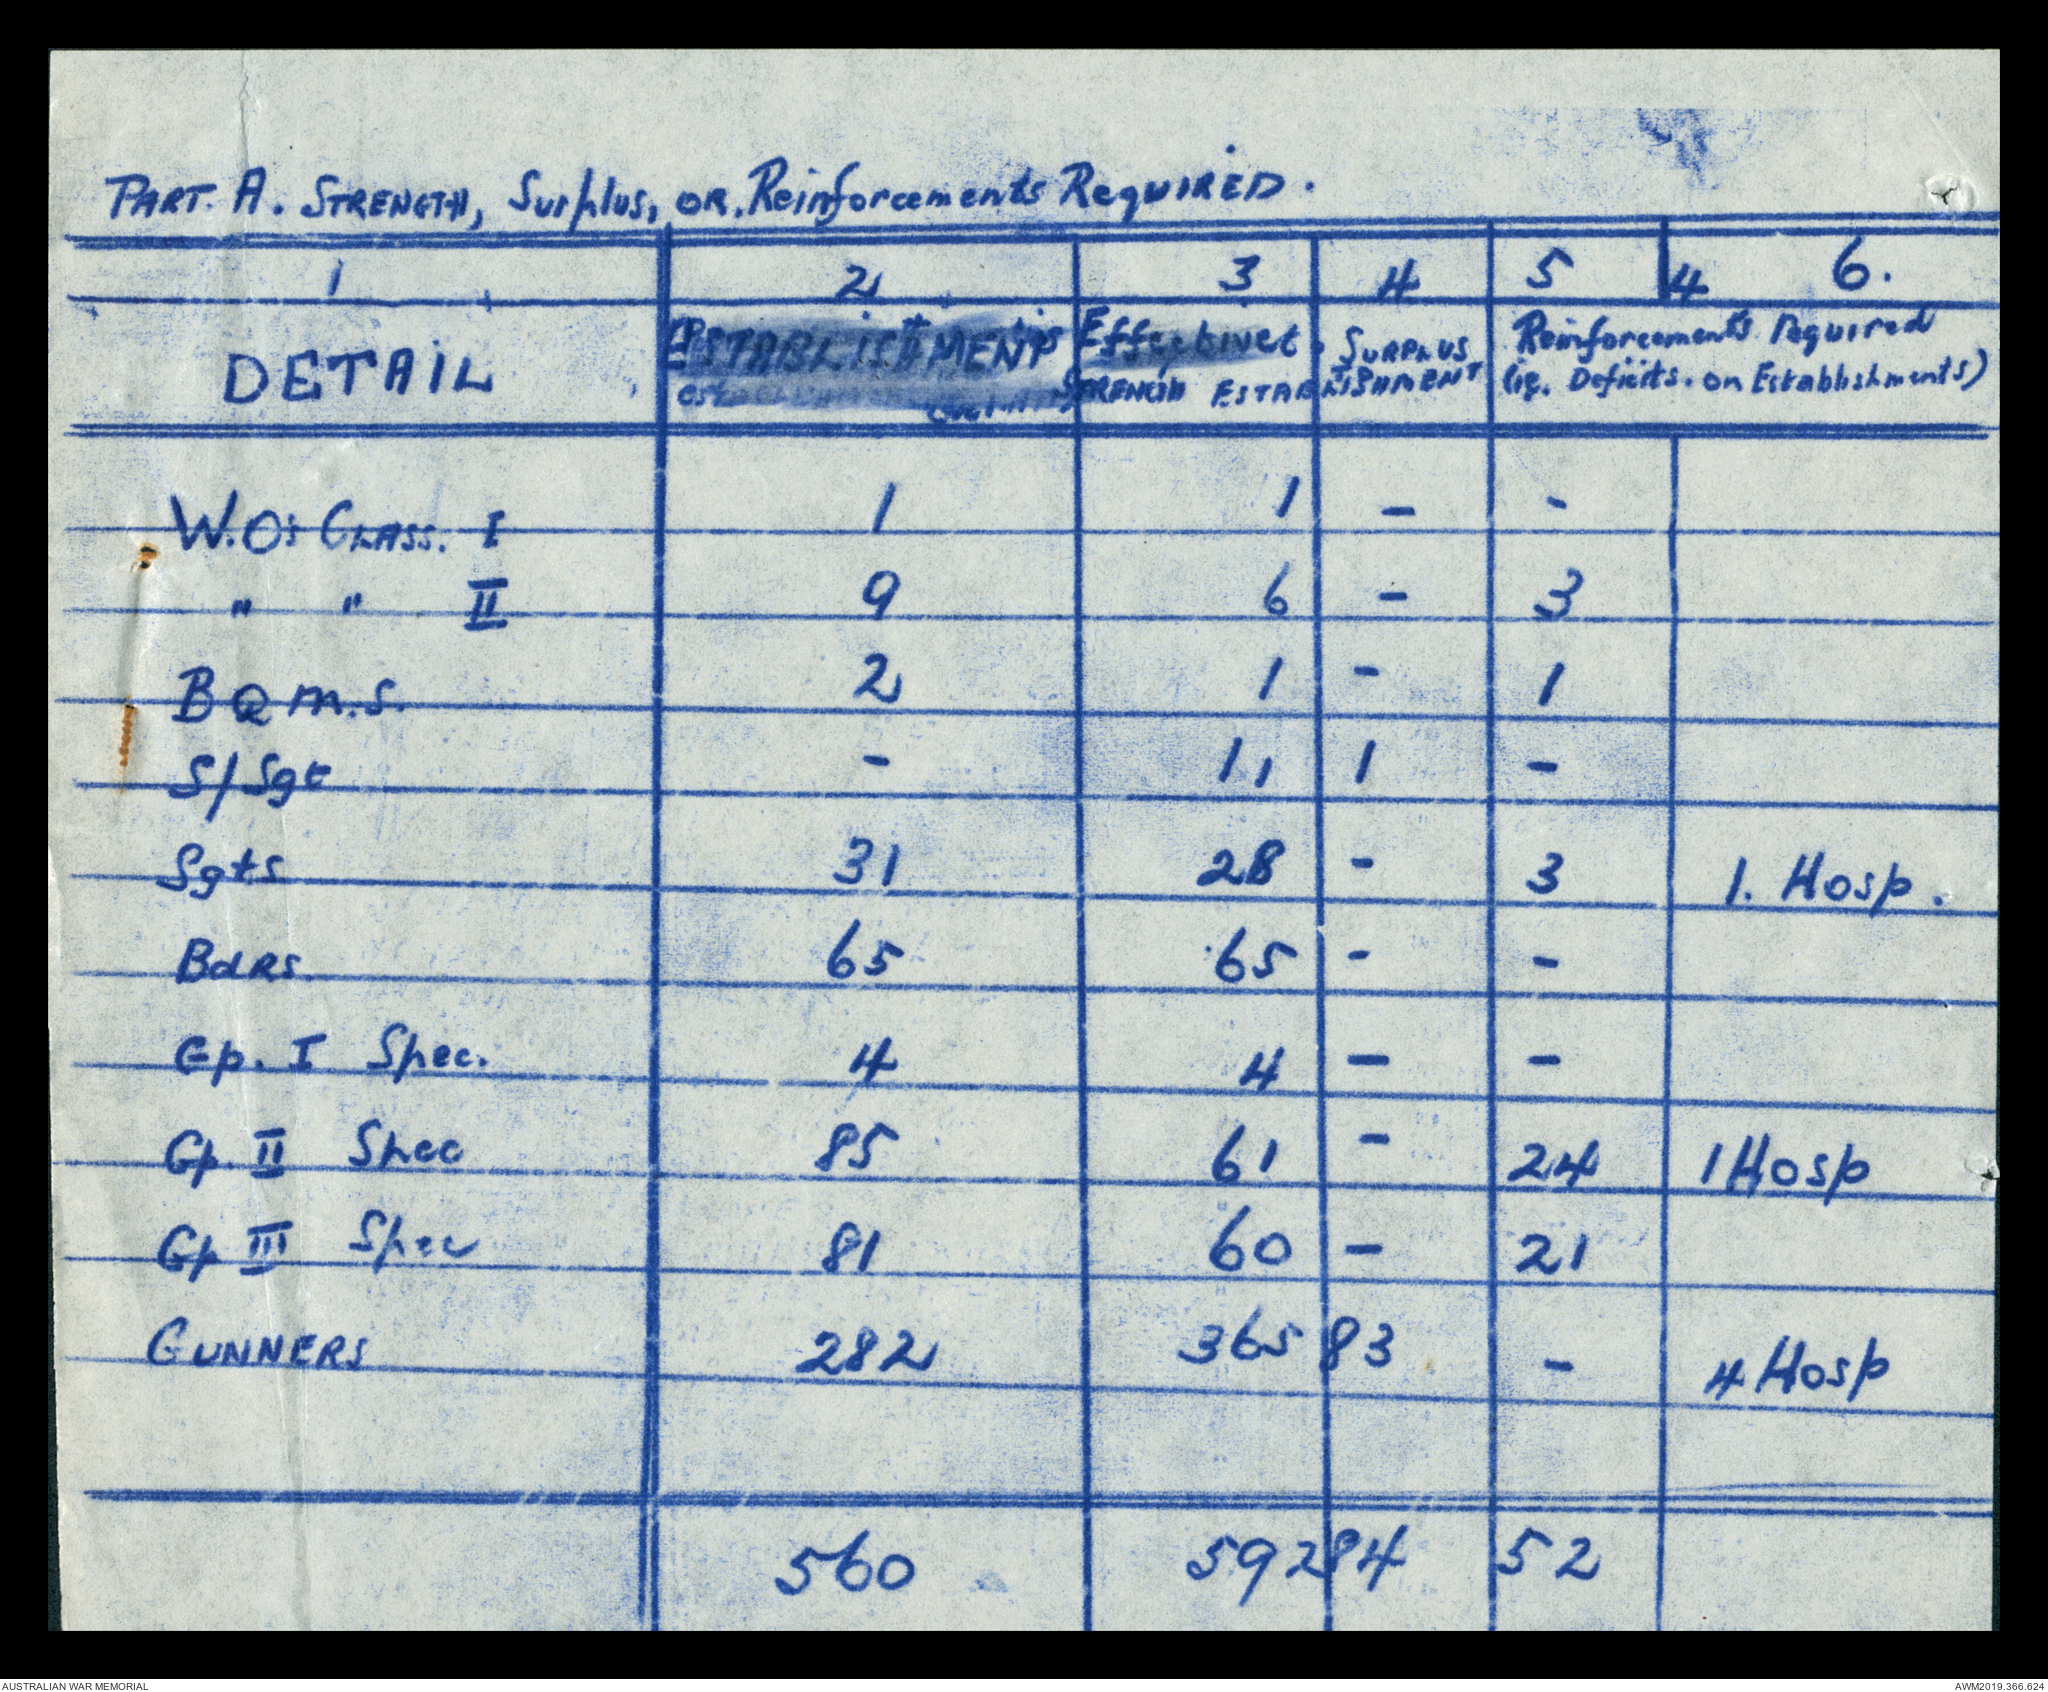 PART. A. STRENGTH, Surplus, OR. Reinforcements REQUIRED.
1 2 3 4 5 4 6.
DETAIL ESTABLISHMENT Effective STRENGTH SURPLUS ESTABLISHMENT Reinforcements required
(ie. Deficits. on Establishments)
W.O's CLASS. I 1 1 - -
" " II 9 6 - 3
B Q M.S. 2 1 - 1
S/Sgt - 1, 1 -
Sgts 31 28 - 3 1. Hosp.
BdRs. 65 65 - -
Gp. I Spec. 4 4 - -
Gp. II Spec 85 61 - 24 1 Hosp
Gp III Spec 81 60 - 21
GUNNERS 282 365 83 - 4 Hosp
560 592 84 52
AUSTRALIAN WAR MEMORIAL AWM2019.366.624